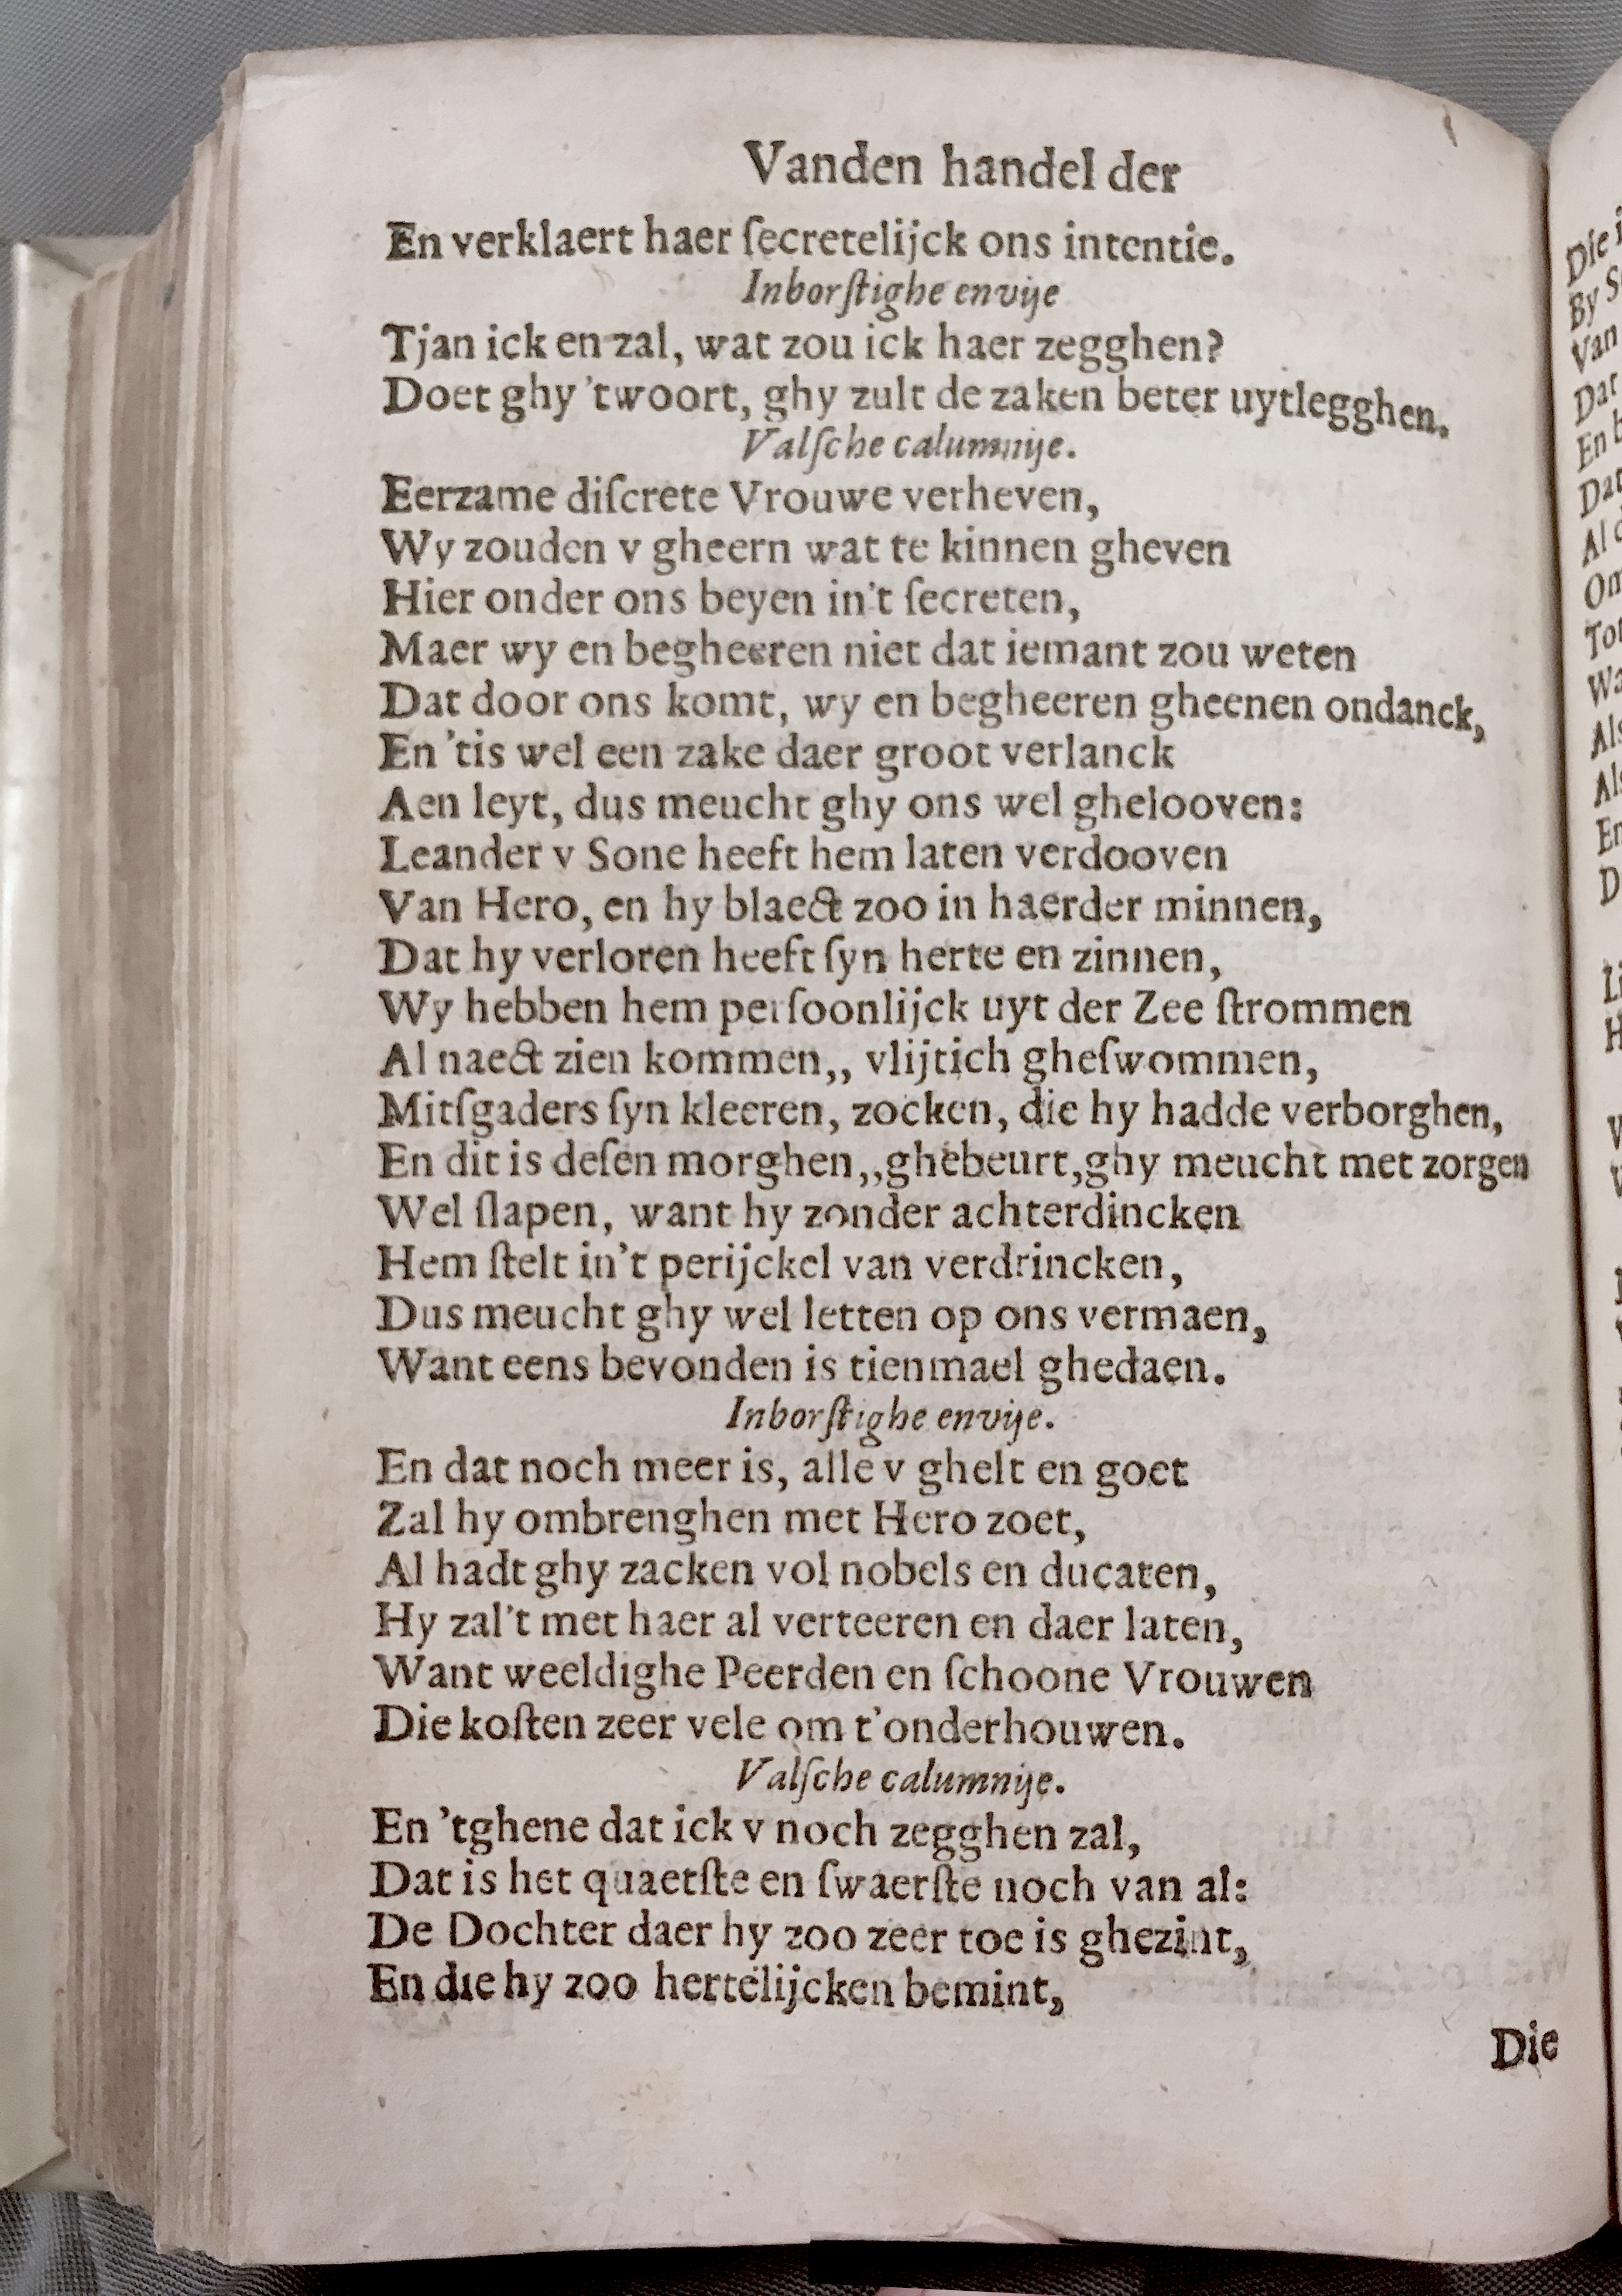 Vanden handel der
En verklaert haer ſecretelijck ons intentie.
Inborſtighe envije
Tjan ick en zal, wat zou ick haer zegghen?
Doet ghy 'twoort, ghy zult de zaken beter uytlegghen.
Valſche calumnije.
Eerzame diſcrete Vrouwe verheven,
Wy zouden v gheern wat te kinnen gheven
Hier onder ons beyen in't ſecreten,
Maer wy en begheeren niet dat iemant zou weten
Dat door ons komt, wy en begheeren gheenen ondanck,
En 'tis wel een zake daer groot verlanck
Aen leyt, dus meucht ghy ons wel ghelooven:
Leander v Sone heeft hem laten verdooven
Van Hero, en hy blaect zoo in haerder minnen,
Dat hy verloren heeft ſyn herte en zinnen,
Wy hebben hem perſoonlijck uyt der Zee ſtrommen
Al naect zien kommen,, vlijtich gheſwommen,
Mitſgaders ſyn kleeren, zocken, die hy hadde verborghen,
En dit is deſen morghen,,ghebeurt,ghy meucht met zorgen
Wel ſlapen, want hy zonder achterdincken
Hem ſtelt in't perijckel van verdrincken,
Dus meucht ghy wel letten op ons vermaen,
Want eens bevonden is tienmael ghedaen.
Inborſtighe envije.
En dat noch meer is, alle v ghelt en goet
Zal hy ombrenghen met Hero zoet,
Al hadt ghy zacken vol nobels en ducaten,
Hy zal't met haer al verteeren en daer laten,
Want weeldighe Peerden en ſchoone Vrouwen
Die koſten zeer vele om t'onderhouwen.
Valſche calumnije.
En 'tghene dat ick v noch zegghen zal,
Dat is het quaetſte en ſwaerſte noch van al:
De Dochter daer hy zoo zeer toe is ghezint,
En die hy zoo hertelijcken bemint,
Die
Die
By
Van
Dat
En
Dat
Al